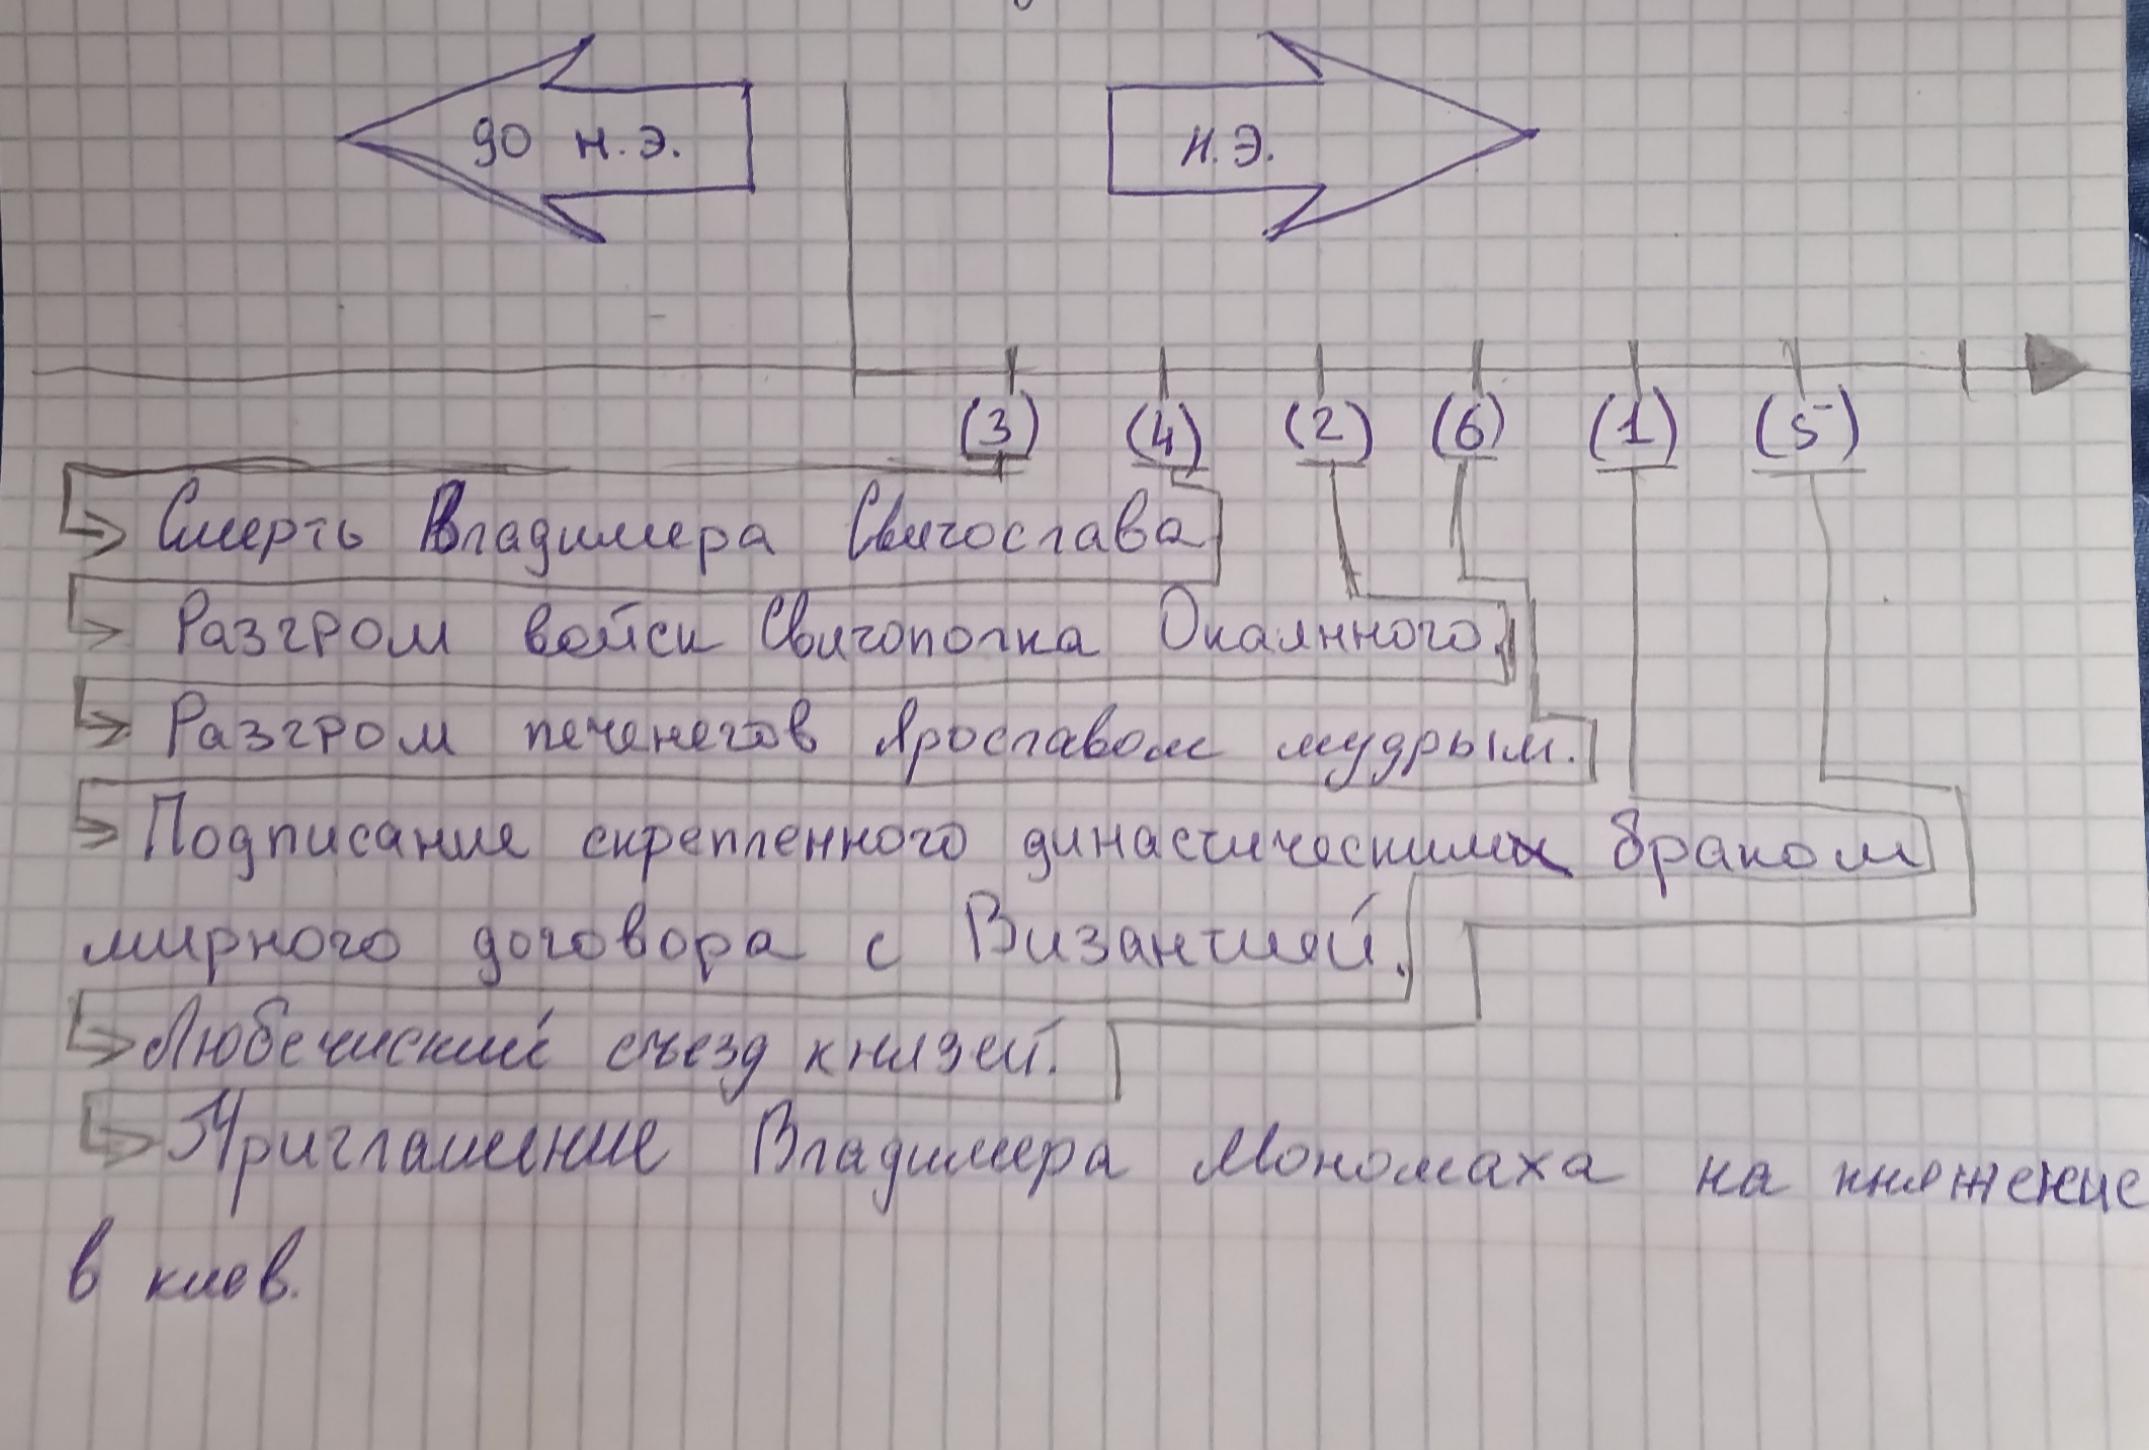 до н.э.
н.э.
(3) (4) (2) (6) (1) (5)
Смерть Владимера Святослава
Разгром войск Святополка Окаянного.
Разгром печенегов Ярославом мудрым.
Подписание скрепленного династическим браком
мирного договора с Византией.
Любечиский съезд князей.
Приглашение Владимера Мономаха на княжение
в киев.